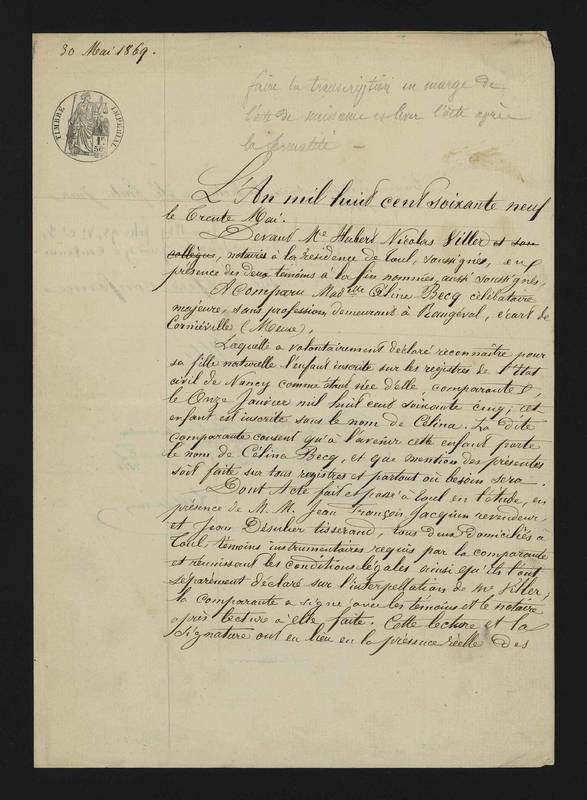 30 Mai 1869.
TIMBRE IMPERIAL
1F
50C
faire la transcription en marge de
l'acte de naissance et lever l'acte après
la formalité
L'An mil huit cent soixante neuf
le Trente Mai.
Devant Me Hubert Nicolas Viller et son
collègue, notaires à la résidence de Toul, soussignés, en
présence des deux témoins à la fin nommés, aussi soussignés,
A Comparu Madelle Céline Becq célibataire
majeure, sans profession demeurant à Rougéval, écart de
Corniéville (Meuse),
Laquelle a volontairement déclaré reconnaître pour
sa fille naturelle l'enfant inscrit sur les registres de l'Etat
civil de Nancy comme étant née d'elle comparante,
le Onze Janvier mil huit cent soixante cinq; cet
enfant est inscrite sous le nom de Célina. La dite
comparante consent qu'à l'avenir cette enfant porte
le nom de Célina Becq, et que mention des présentes
soit faite sur tous registres et partout où besoin sera.
Dont Acte fait et passé à Toul en l'étude, en
présence de M.M. Jean François Jacquin revendeur,
et Jean Désulier tisserand, tous deux domiciliés à
Toul, témoins instrumentaires requis par la comparante
et réunissant les conditions légales ainsi qu'ils l'ont
séparément déclaré sur l'interpellation de Me Viller,
la comparante a signé avec les témoins et le notaire
après lecture à elle faite. Cette lecture et la
signature ont eu lieu en la présence réelle des